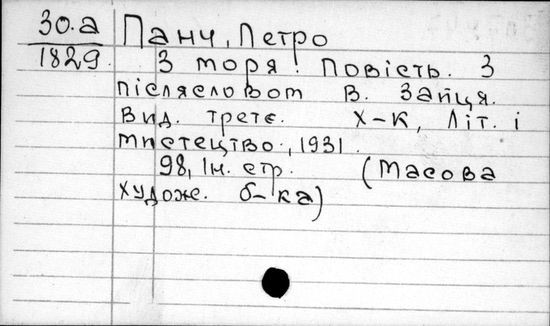 30.а
1829.
Панч, Петро
З моря. Повість. З
післясловом В. Зайця.
Вид. третє. Х-К, Літ. і
мистецтво, 1931.
98, Ін. стр. (Масова
художе. б-ка)